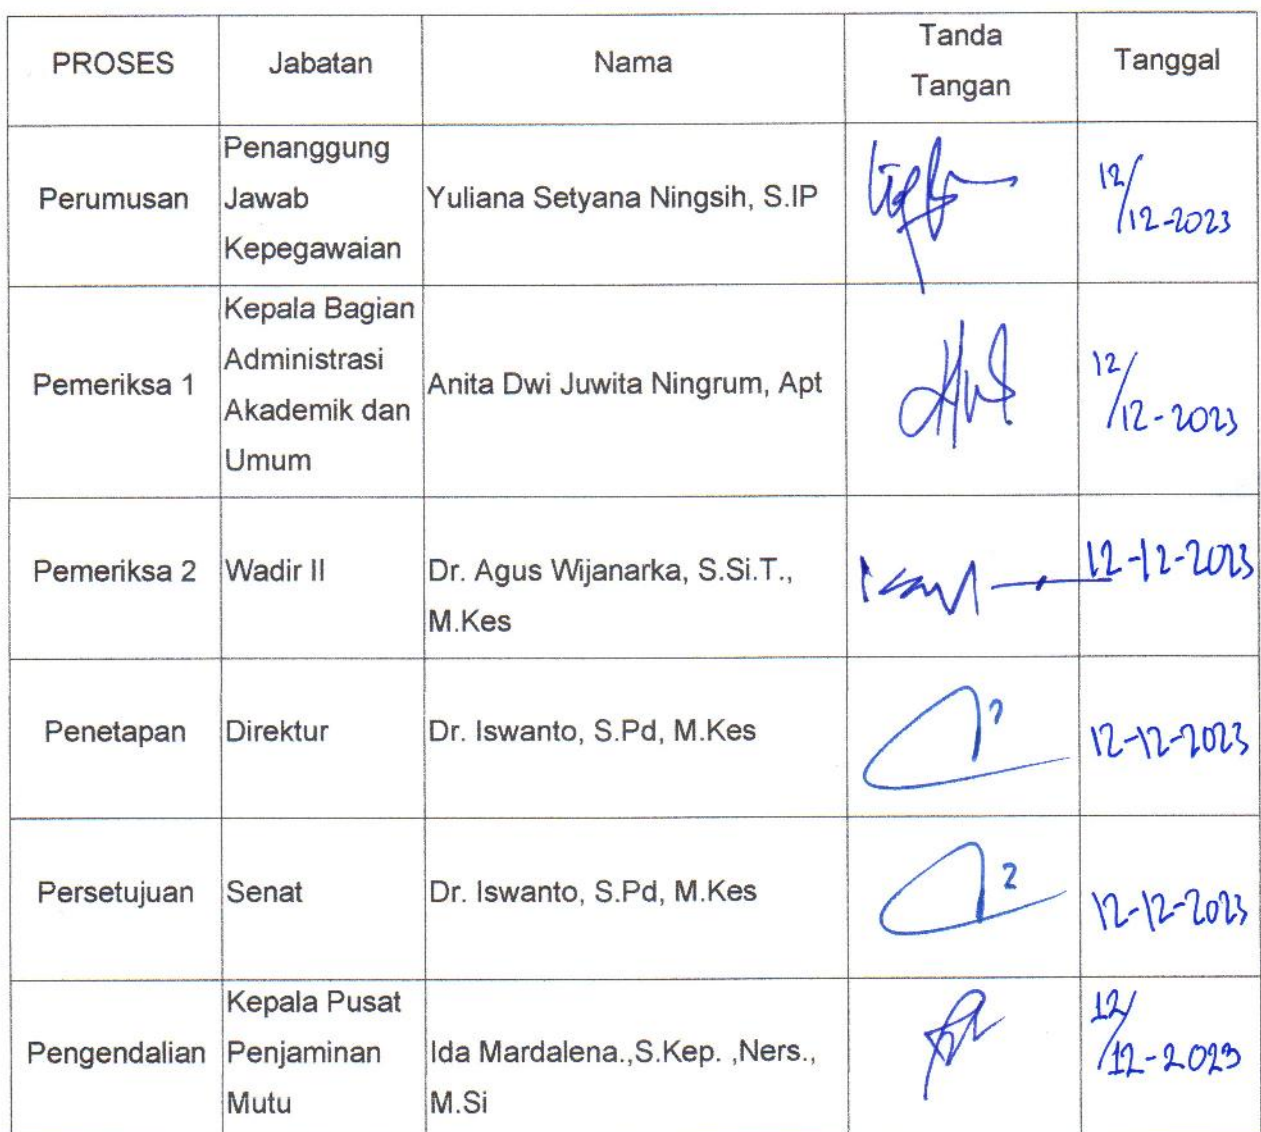 PROSES Jabatan Nama Tanda Tangan Tanggal
Perumusan
Penanggung
Jawab
Kepegawaian
Yuliana Setyana Ningsih, S.IP
12/12-2023
Pemeriksa 1
Kepala Bagian
Administrasi
Akademik dan
Umum
Anita Dwi Juwita Ningrum, Apt
12/12-2023
Pemeriksa 2
Wadir II
Dr. Agus Wijanarka, S.Si.T.,
M.Kes
12-12-2023
Penetapan
Direktur
Dr. Iswanto, S.Pd, M.Kes
12-12-2023
Persetujuan
Senat
Dr. Iswanto, S.Pd, M.Kes
12-12-2023
Pengendalian
Kepala Pusat
Penjaminan
Mutu
Ida Mardalena.,S.Kep. ,Ners.,
M.Si
12/12-2023